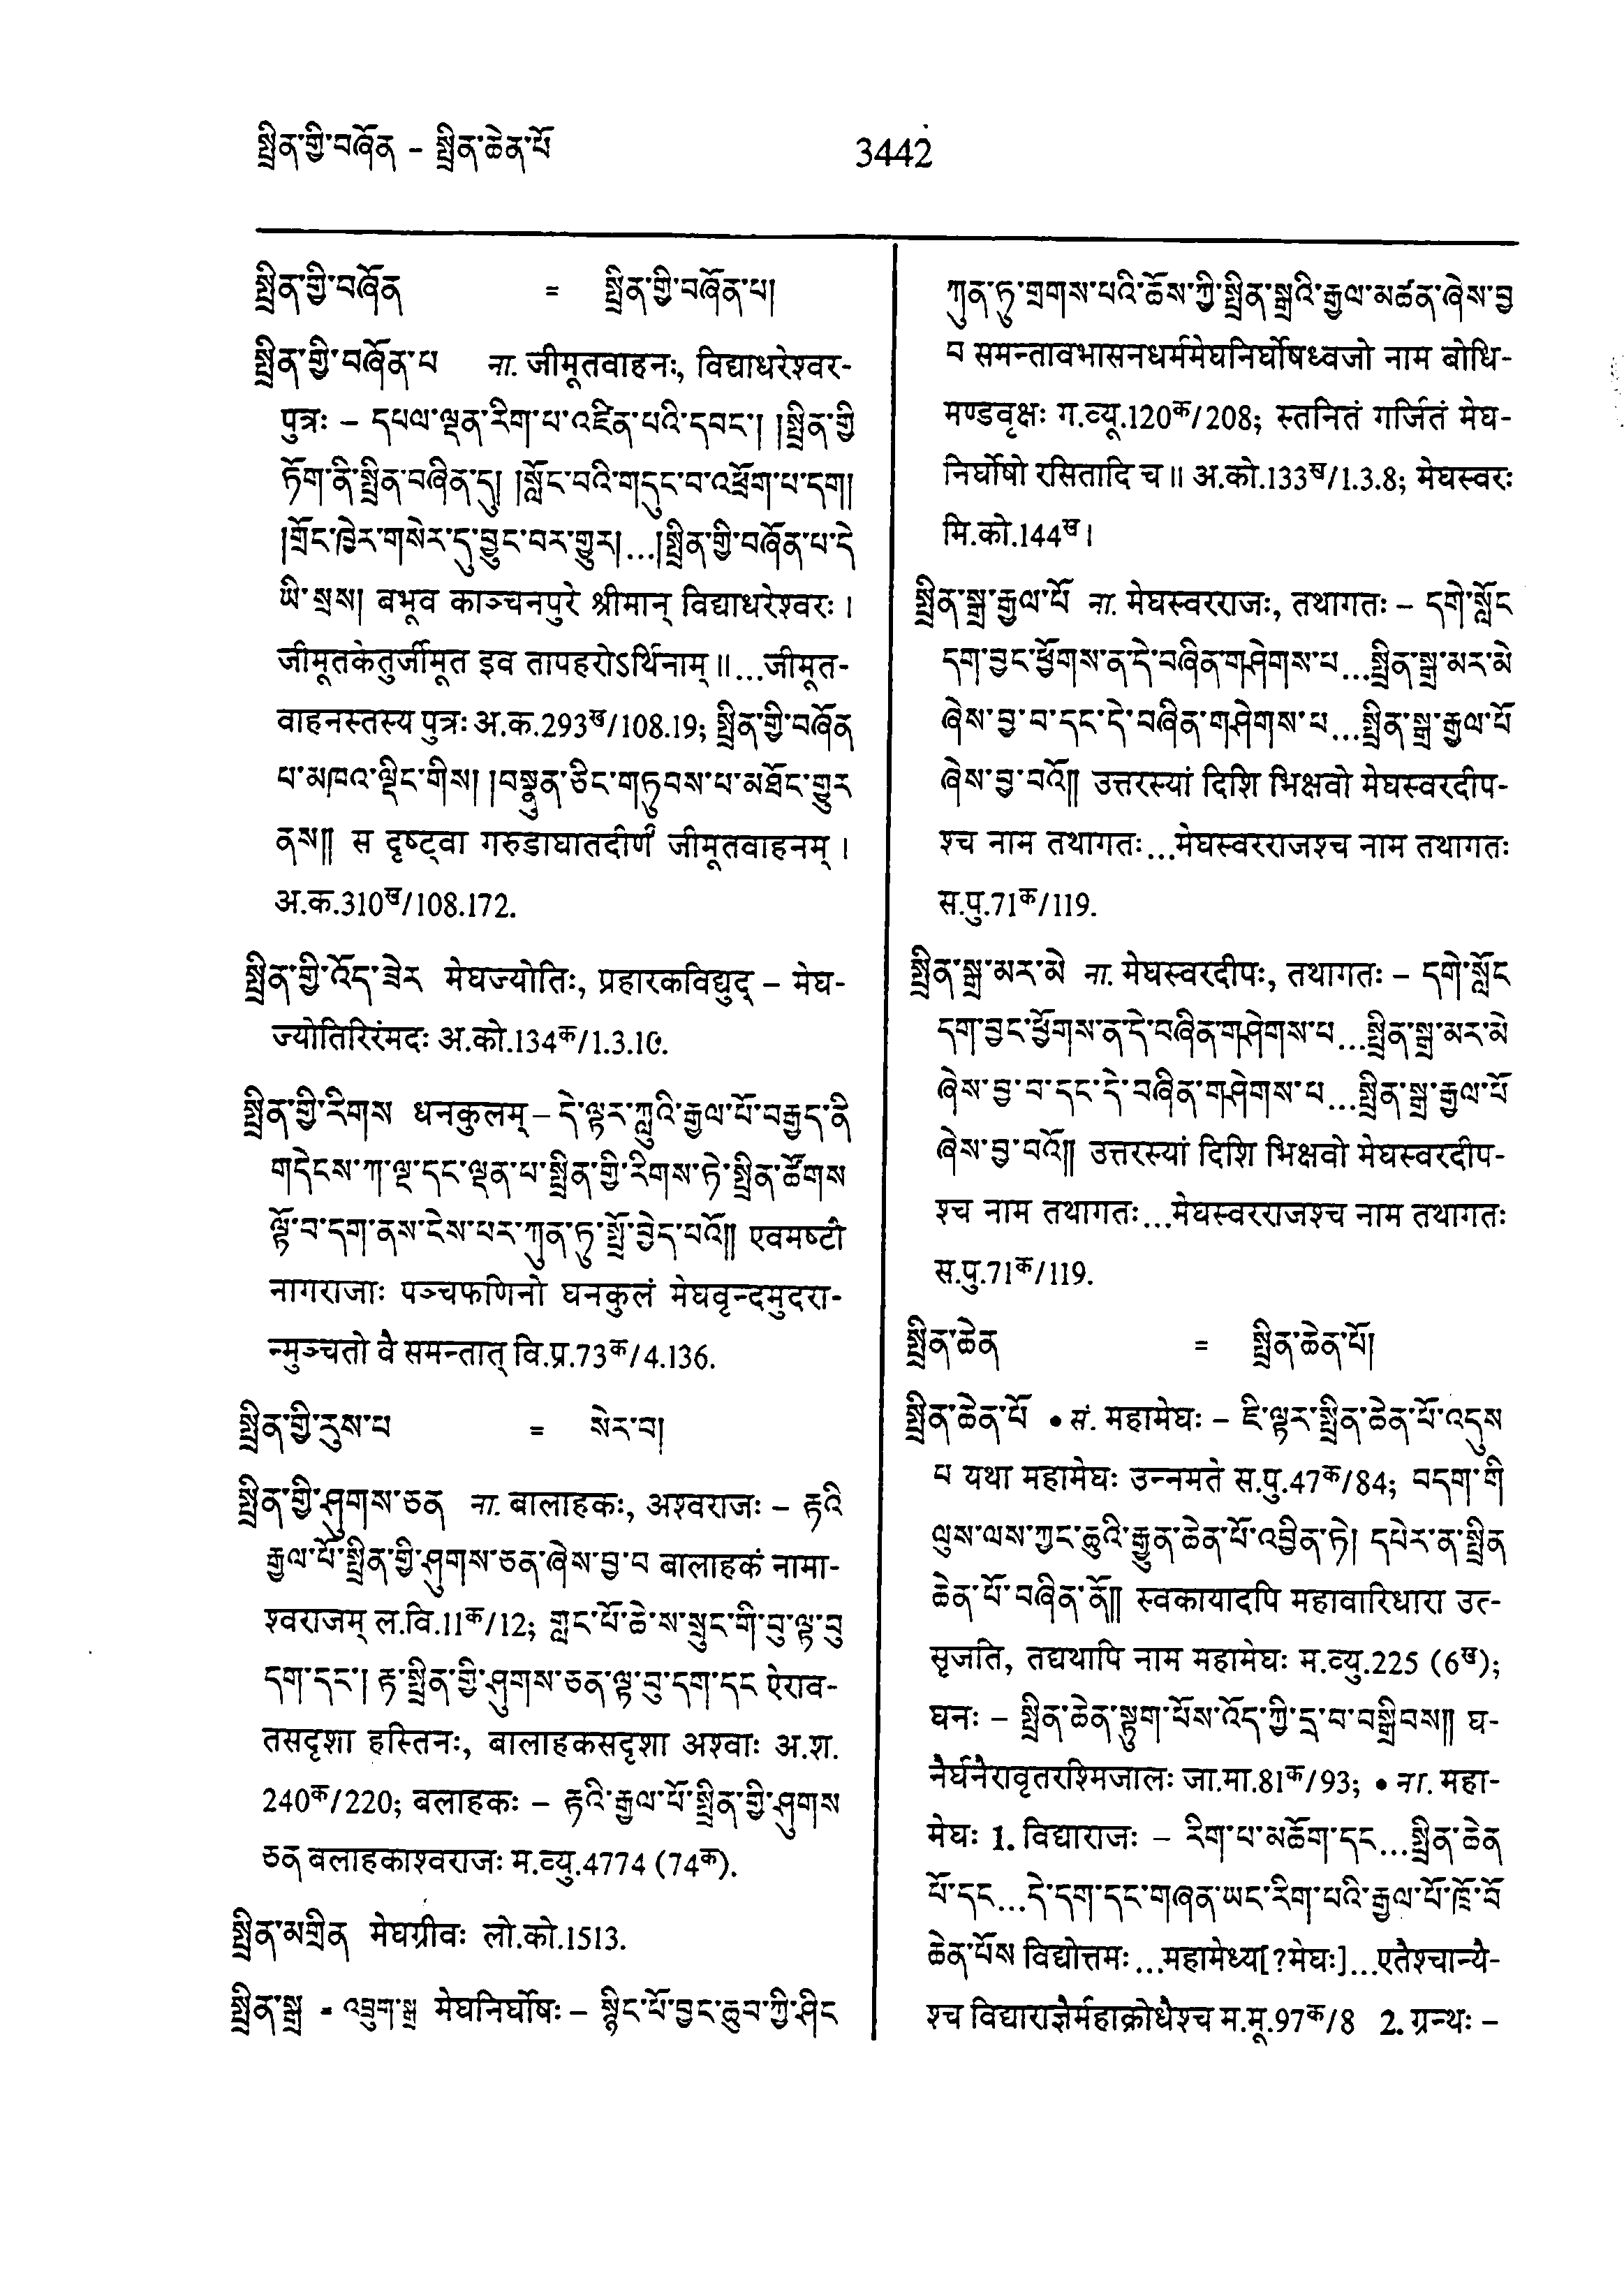 སྤྲིན་གྱི་བཞོན – སྤྲིན་ཆེན་པོ
3442
སྤྲིན་གྱི་བཞོན = སྤྲིན་གྱི་བཞོན་པ།
སྤྲིན་གྱི་བཞོན་པ ना. जीमूतवाहनः, विद्याधरेश्वर-
पुत्रः – དཔལ་ལྡན་རིག་པ་འཛིན་པའི་དབང་། །སྤྲིན་གྱི
ཏོག་ནི་སྤྲིན་བཞིན་དུ། །སློང་བའི་གདུང་བ་འཕྲོག་པ་དག།
།གྲོང་ཁྱེར་གསེར་དུ་བྱུང་བར་གྱུར།...།སྤྲིན་གྱི་བཞོན་པ་དེ
ཡི་སྲས། बभूव काञ्चनपुरे श्रीमान् विद्याधरेश्वरः ।
जीमूतकेतुर्जीमूत इव तापहरोऽर्थिनाम् ॥...जीमूत-
वाहनस्तस्य पुत्रः अ.क.293ख/108.19; སྤྲིན་གྱི་བཞོན
པ་མཁའ་ལྡིང་གིས། །བསྣུན་ཅིང་གཏུབས་པ་མཐོང་གྱུར
ནས།། स दृष्ट्वा गरुडाघातदीर्णं जीमूतवाहनम् ।
अ.क.310ख/108.172.
སྤྲིན་གྱི་འོད་ཟེར मेघज्योतिः, प्रहारकविद्युद् – मेघ-
ज्योतिरिरंमदः अ.को.134क/1.3.10.
སྤྲིན་གྱི་རིགས धनकुलम् – དེ་ལྟར་ཀླུའི་རྒྱལ་པོ་བརྒྱད་ནི
གདེངས་ཀ་ལྔ་དང་ལྡན་པ་སྤྲིན་གྱི་རིགས་ཏེ་སྤྲིན་ཚོགས
ལྟོ་བ་དག་ནས་ངེས་པར་ཀུན་ཏུ་སྤྲོ་བྱེད་པའོ།། एवमष्टौ
नागराजाः पञ्चफणिनो घनकुलं मेघवृन्दमुदरा-
न्मुञ्चतो वै समन्तात् वि.प्र.73क/4.136.
སྤྲིན་གྱི་རུས་པ = སེར་བ།
སྤྲིན་གྱི་ཤུགས་ཅན ना. बालाहकः, अश्वराजः – རྟའི
རྒྱལ་པོ་སྤྲིན་གྱི་ཤུགས་ཅན་ཞེས་བྱ་བ बालाहकं नामा-
श्वराजम् ल.वि.11क/12; གླང་པོ་ཆེ་ས་སྲུང་གི་བུ་ལྟ་བུ
དག་དང་། རྟ་སྤྲིན་གྱི་ཤུགས་ཅན་ལྟ་བུ་དག་དང ऐराव-
तसदृशा हस्तिनः, बालाहकसदृशा अश्वाः अ.श.
240क/220; बलाहकः – རྟའི་རྒྱལ་པོ་སྤྲིན་གྱི་ཤུགས
ཅན बलाहकाश्वराजः म.व्यु.4774 (74क).
སྤྲིན་མགྲིན मेघग्रीवः लो.को.1513.
སྤྲིན་སྒྲ = འབྲུག་སྒྲ मेघनिर्घोषः – སྙིང་པོ་བྱང་ཆུབ་ཀྱི་ཤིང
ཀུན་ཏུ་གྲགས་པའི་ཆོས་ཀྱི་སྤྲིན་སྒྲའི་རྒྱལ་མཚན་ཞེས་བྱ
བ समन्तावभासनधर्ममेघनिर्घोषध्वजो नाम बोधि-
मण्डवृक्षः ग.व्यू.120क/208; स्तनितं गर्जितं मेघ-
निर्घोषो रसितादि च ॥ अ.को.133ख/1.3.8; मेघस्वरः
मि.को.144ख।
སྤྲིན་སྒྲ་རྒྱལ་པོ ना. मेघस्वरराजः, तथागतः – དགེ་སློང
དག་བྱང་ཕྱོགས་ན་དེ་བཞིན་གཤེགས་པ...སྤྲིན་སྒྲ་མར་མེ
ཞེས་བྱ་བ་དང་དེ་བཞིན་གཤེགས་པ...སྤྲིན་སྒྲ་རྒྱལ་པོ
ཞེས་བྱ་བའོ།། उत्तरस्यां दिशि भिक्षवो मेघस्वरदीप-
श्च नाम तथागतः...मेघस्वरराजश्च नाम तथागतः
स.पु.71क/119.
སྤྲིན་སྒྲ་མར་མེ ना. मेघस्वरदीपः, तथागतः – དགེ་སློང
དག་བྱང་ཕྱོགས་ན་དེ་བཞིན་གཤེགས་པ...སྤྲིན་སྒྲ་མར་མེ
ཞེས་བྱ་བ་དང་དེ་བཞིན་གཤེགས་པ...སྤྲིན་སྒྲ་རྒྱལ་པོ
ཞེས་བྱ་བའོ།། उत्तरस्यां दिशि भिक्षवो मेघस्वरदीप-
श्च नाम तथागतः...मेघस्वरराजश्च नाम तथागतः
स.पु.71क/119.
སྤྲིན་ཆེན = སྤྲིན་ཆེན་པོ།
སྤྲིན་ཆེན་པོ • सं. महामेघः – ཇི་ལྟར་སྤྲིན་ཆེན་པོ་འདུས
པ यथा महामेघः उन्नमते स.पु.47क/84; བདག་གི
ལུས་ལས་ཀྱང་ཆུའི་རྒྱུན་ཆེན་པོ་འབྱིན་ཏེ། དཔེར་ན་སྤྲིན
ཆེན་པོ་བཞིན་ནོ།། स्वकायादपि महावारिधारा उत्-
सृजति, तद्यथापि नाम महामेघः म.व्यु.225 (6ख);
घनः – སྤྲིན་ཆེན་སྟུག་པོས་འོད་ཀྱི་དྲ་བ་བསྒྲིབས།། घ-
नैर्घनैरावृतरश्मिजालः जा.मा.81क/93; • ना. महा-
मेघः 1. विद्याराजः – རིག་པ་མཆོག་དང...སྤྲིན་ཆེན
པོ་དང...དེ་དག་དང་གཞན་ཡང་རིག་པའི་རྒྱལ་པོ་ཁྲོ་བོ
ཆེན་པོས विद्योत्तमः...महामेध्य[?मेघः]...एतैश्चान्यै-
श्च विद्याराज्ञैर्महाक्रोधैश्च म.मू.97क/8 2. ग्रन्थः –